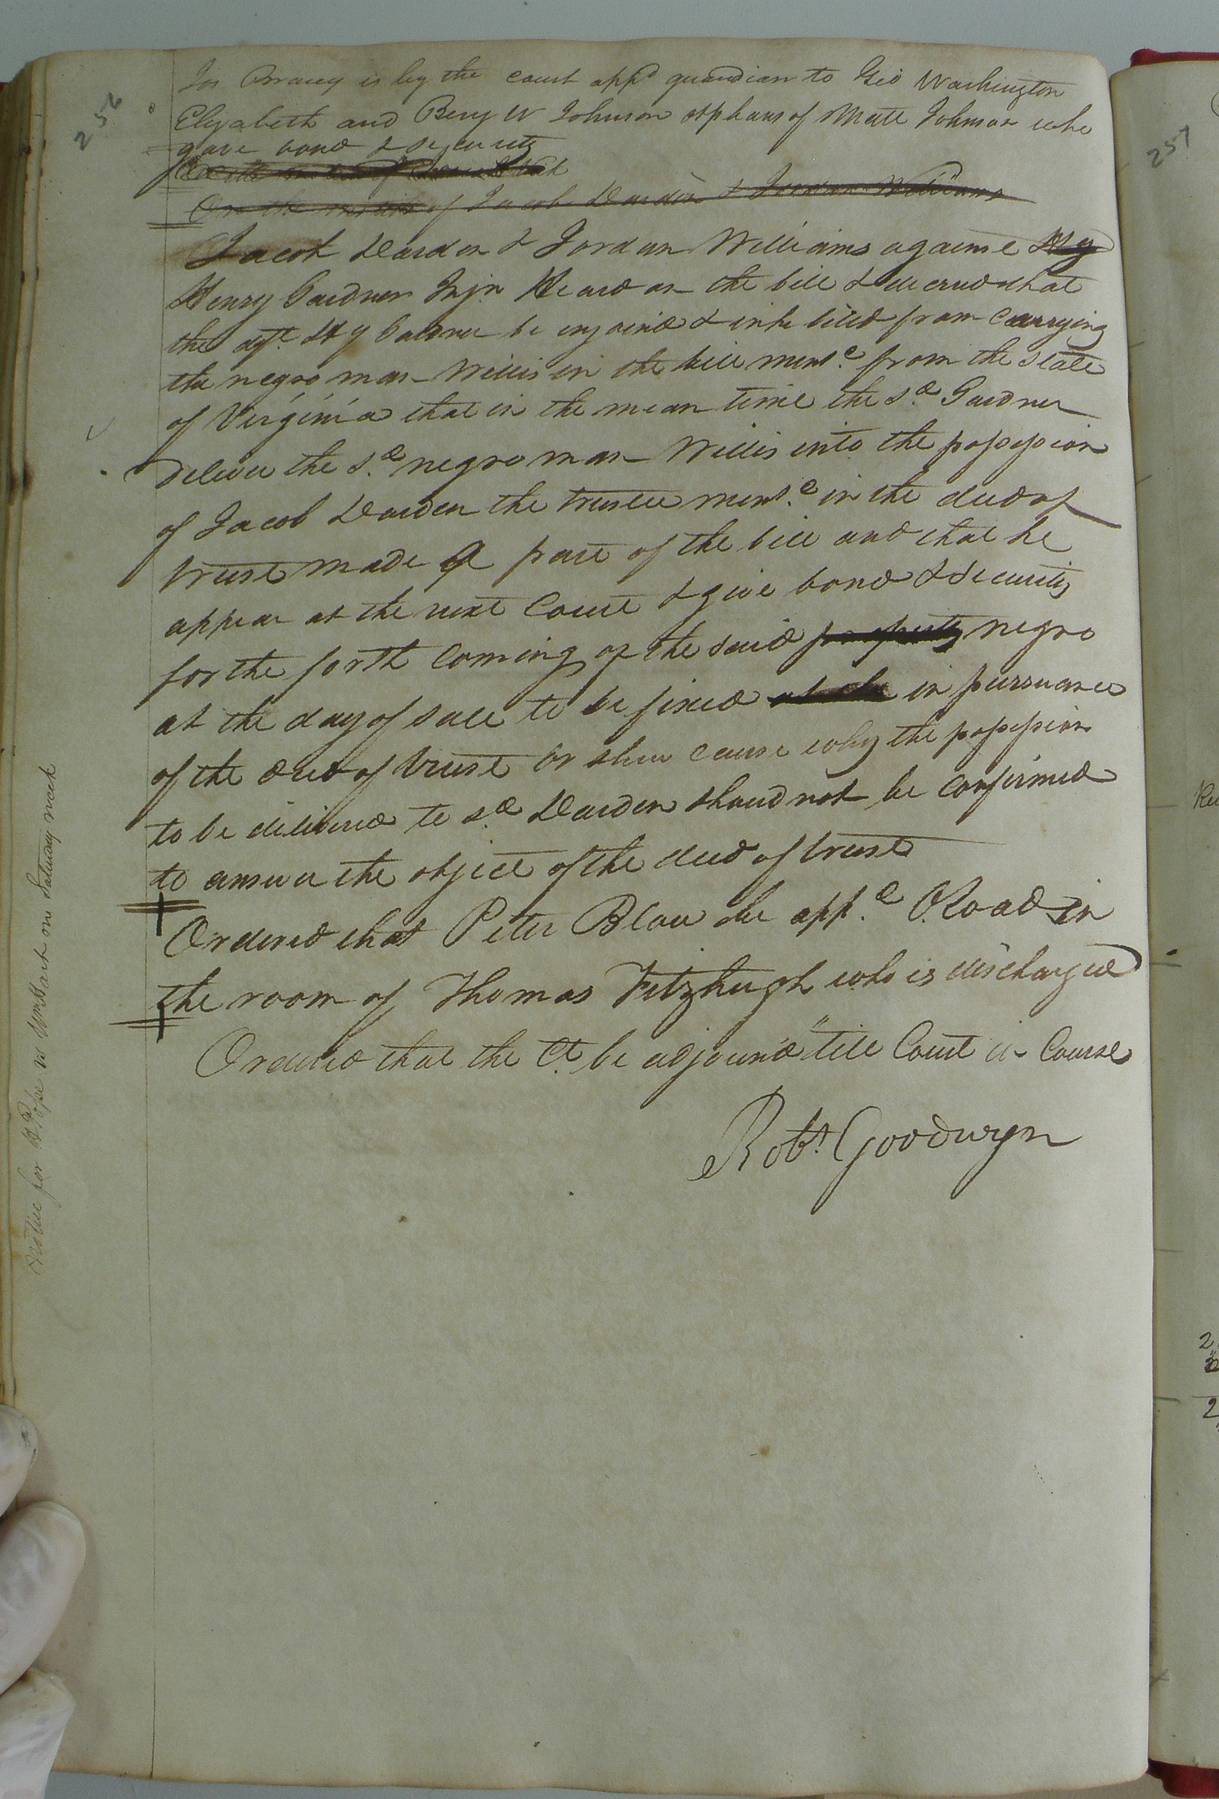 256
Jos Bracey is by the court app.d guardian to Geo Washington
Elizabeth and Benj W Johnson orphans of Matt Johnson who
gave bond & security
On the motion of
On the motion of Jacob Darden & Jordan Williams
Jacob Darden & Jordan Williams against Hy
Henry Gardner Injn Heard on the bill & decreed that
the Hy Gardner be enjoined & inhibited from carrying
the negro man Willis in the bill ment.d from the State
of Virginia that in the mean time the s.d Gardner
deliver the s.d negro man Willis into the possession
of Jacob Darden the trustee ment.d in the deed of
trust made a part of the bill and that he
appear at the next Court & give bond & security
for the forth coming of the said property negro
at the day of sale to be fixed in pursuance
of the deed of trust or shew cause why the possession
to be delivered to s.d Darden should not be confirmed
to answer the object of the deed of trust
Ordered that Peter Blow be app.d O. Road in
the room of Thomas Fitzhugh who is discharged
Ordered that the Ct. be adjourn'd till Court in Course
Robt. Goodwyn
Notice for Pope on Saturday next
257